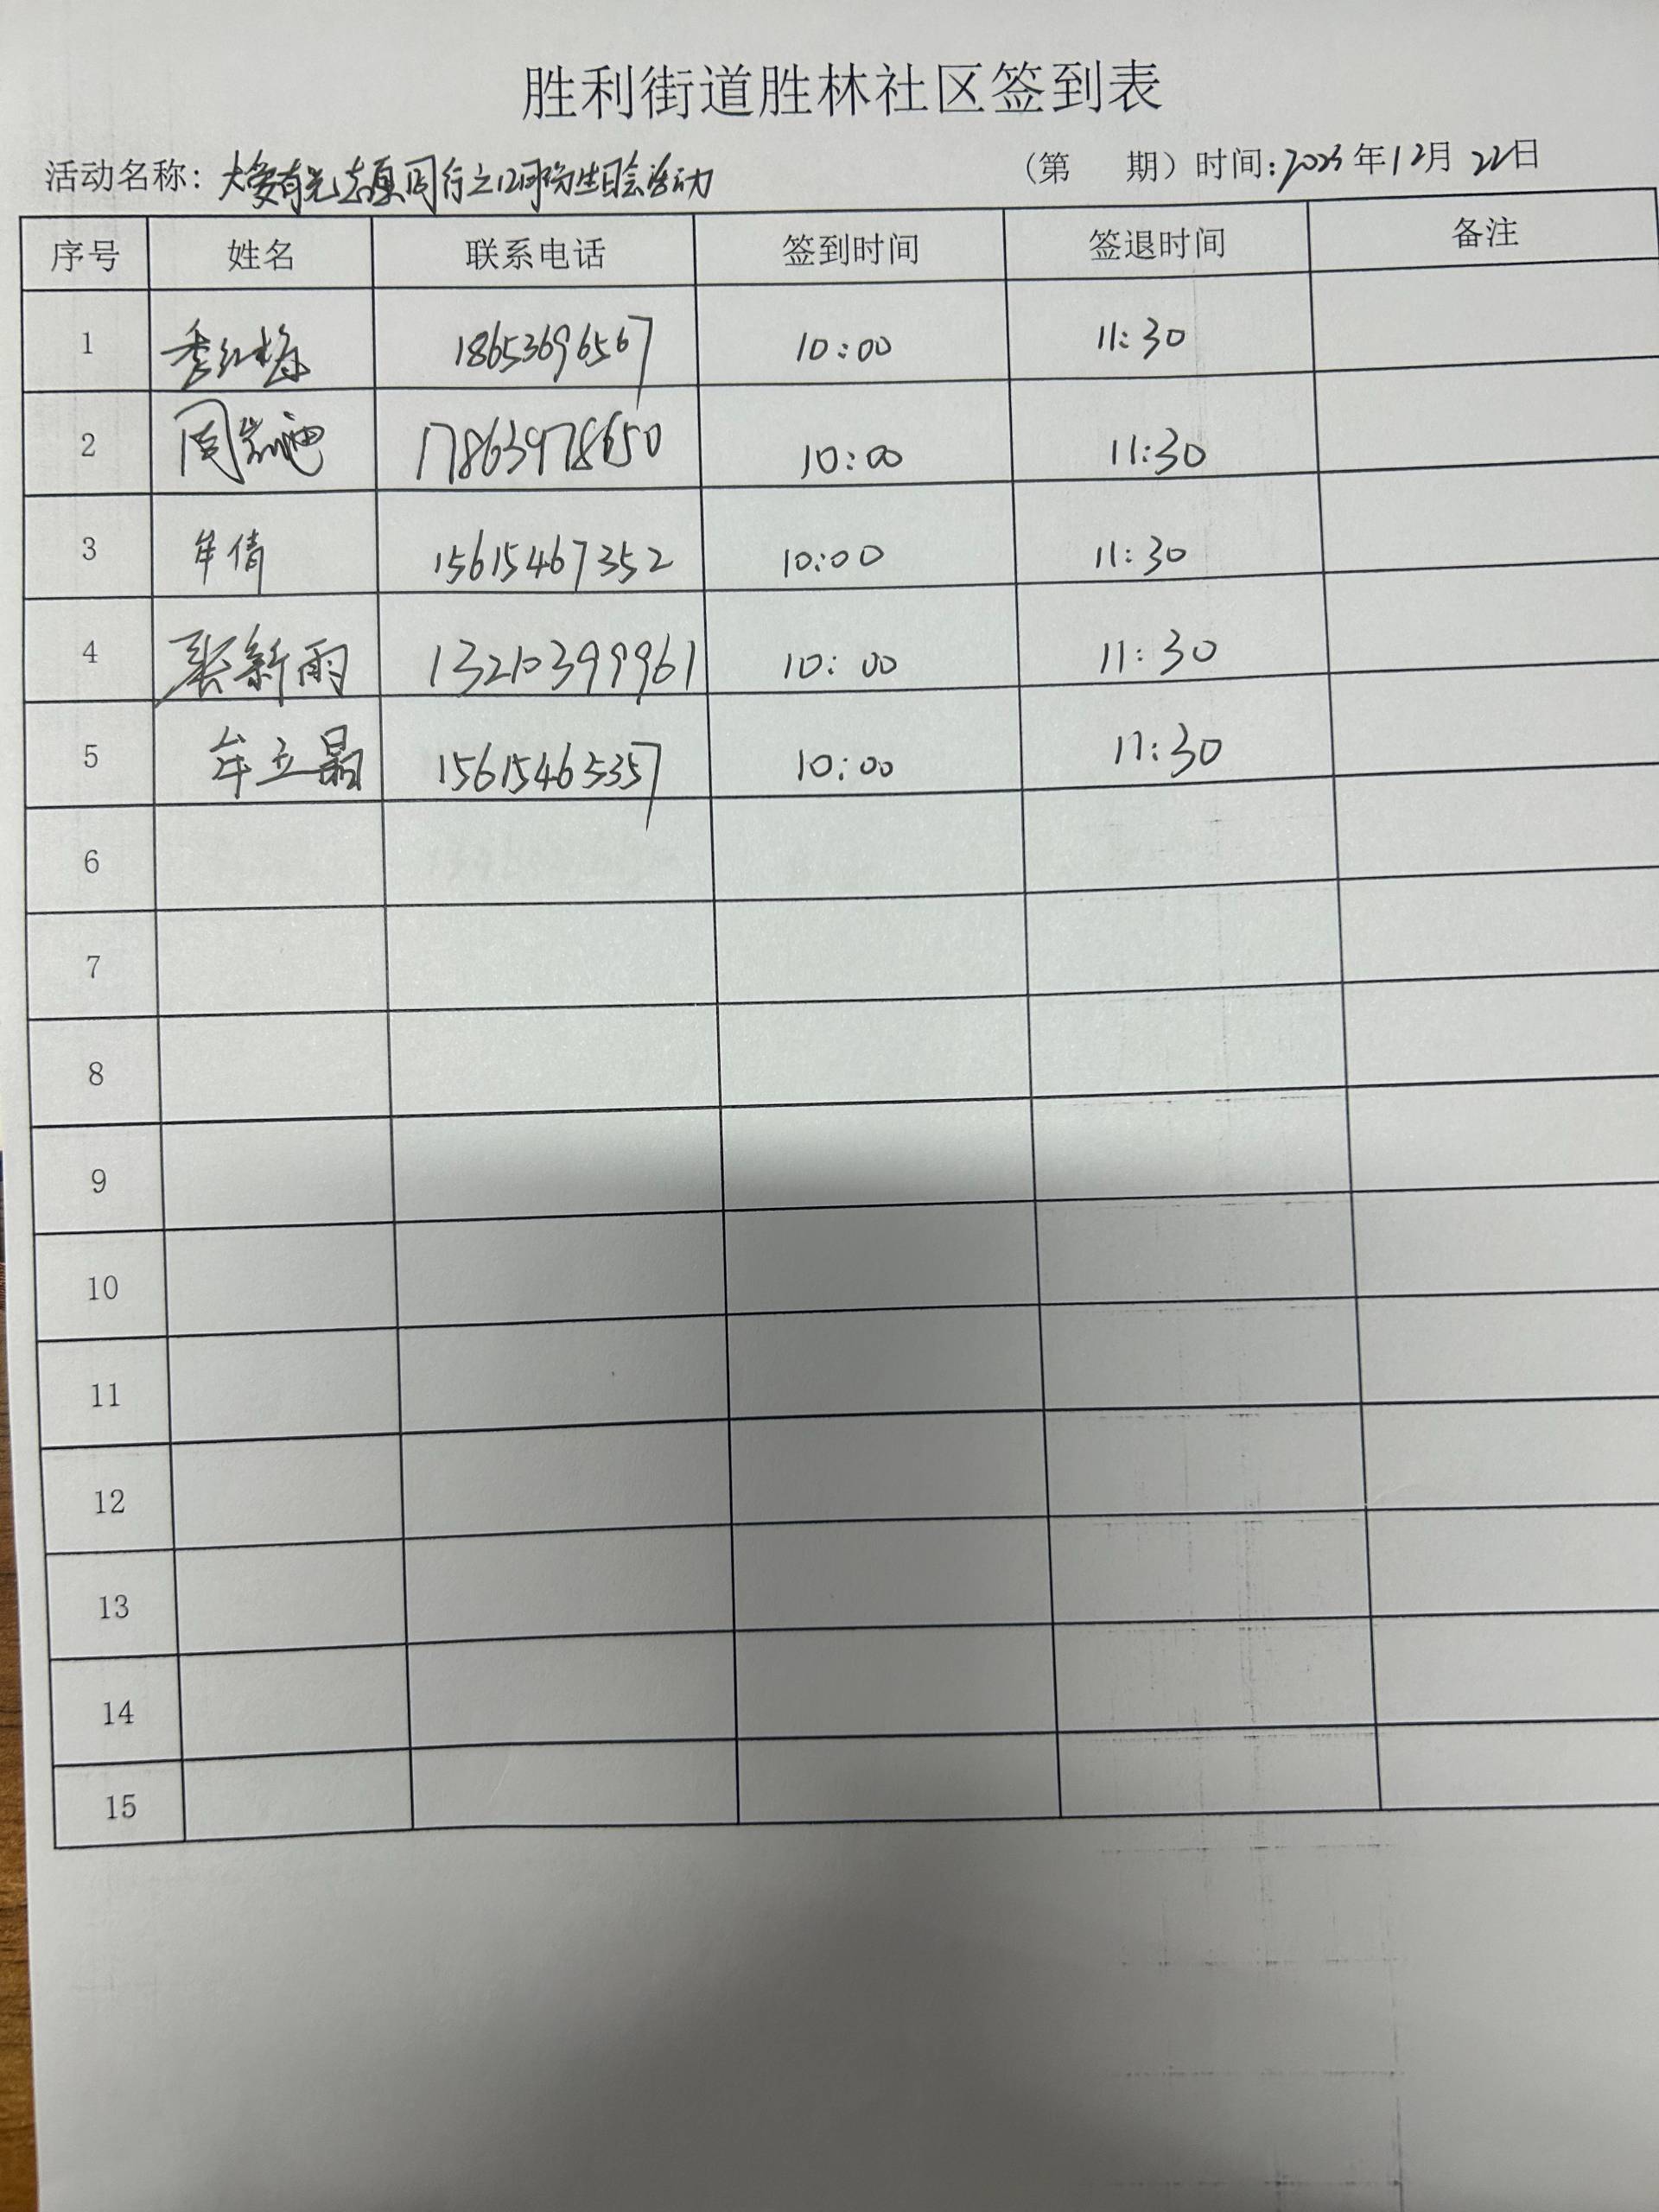 胜利街道胜林社区签到表
活动名称：大爱有光志愿同行之12月份生日会活动 （第 期）时间：2023年12月22日
序号 姓名 联系电话 签到时间 签退时间 备注
1 季红梅 18653696567 10:00 11:30
2 周 17863978650 10:00 11:30
3 牟倩 15615467352 10:00 11:30
4 裴新雨 13210399961 10:00 11:30
5 牟立晶 15615465357 10:00 11:30
6
7
8
9
10
11
12
13
14
15